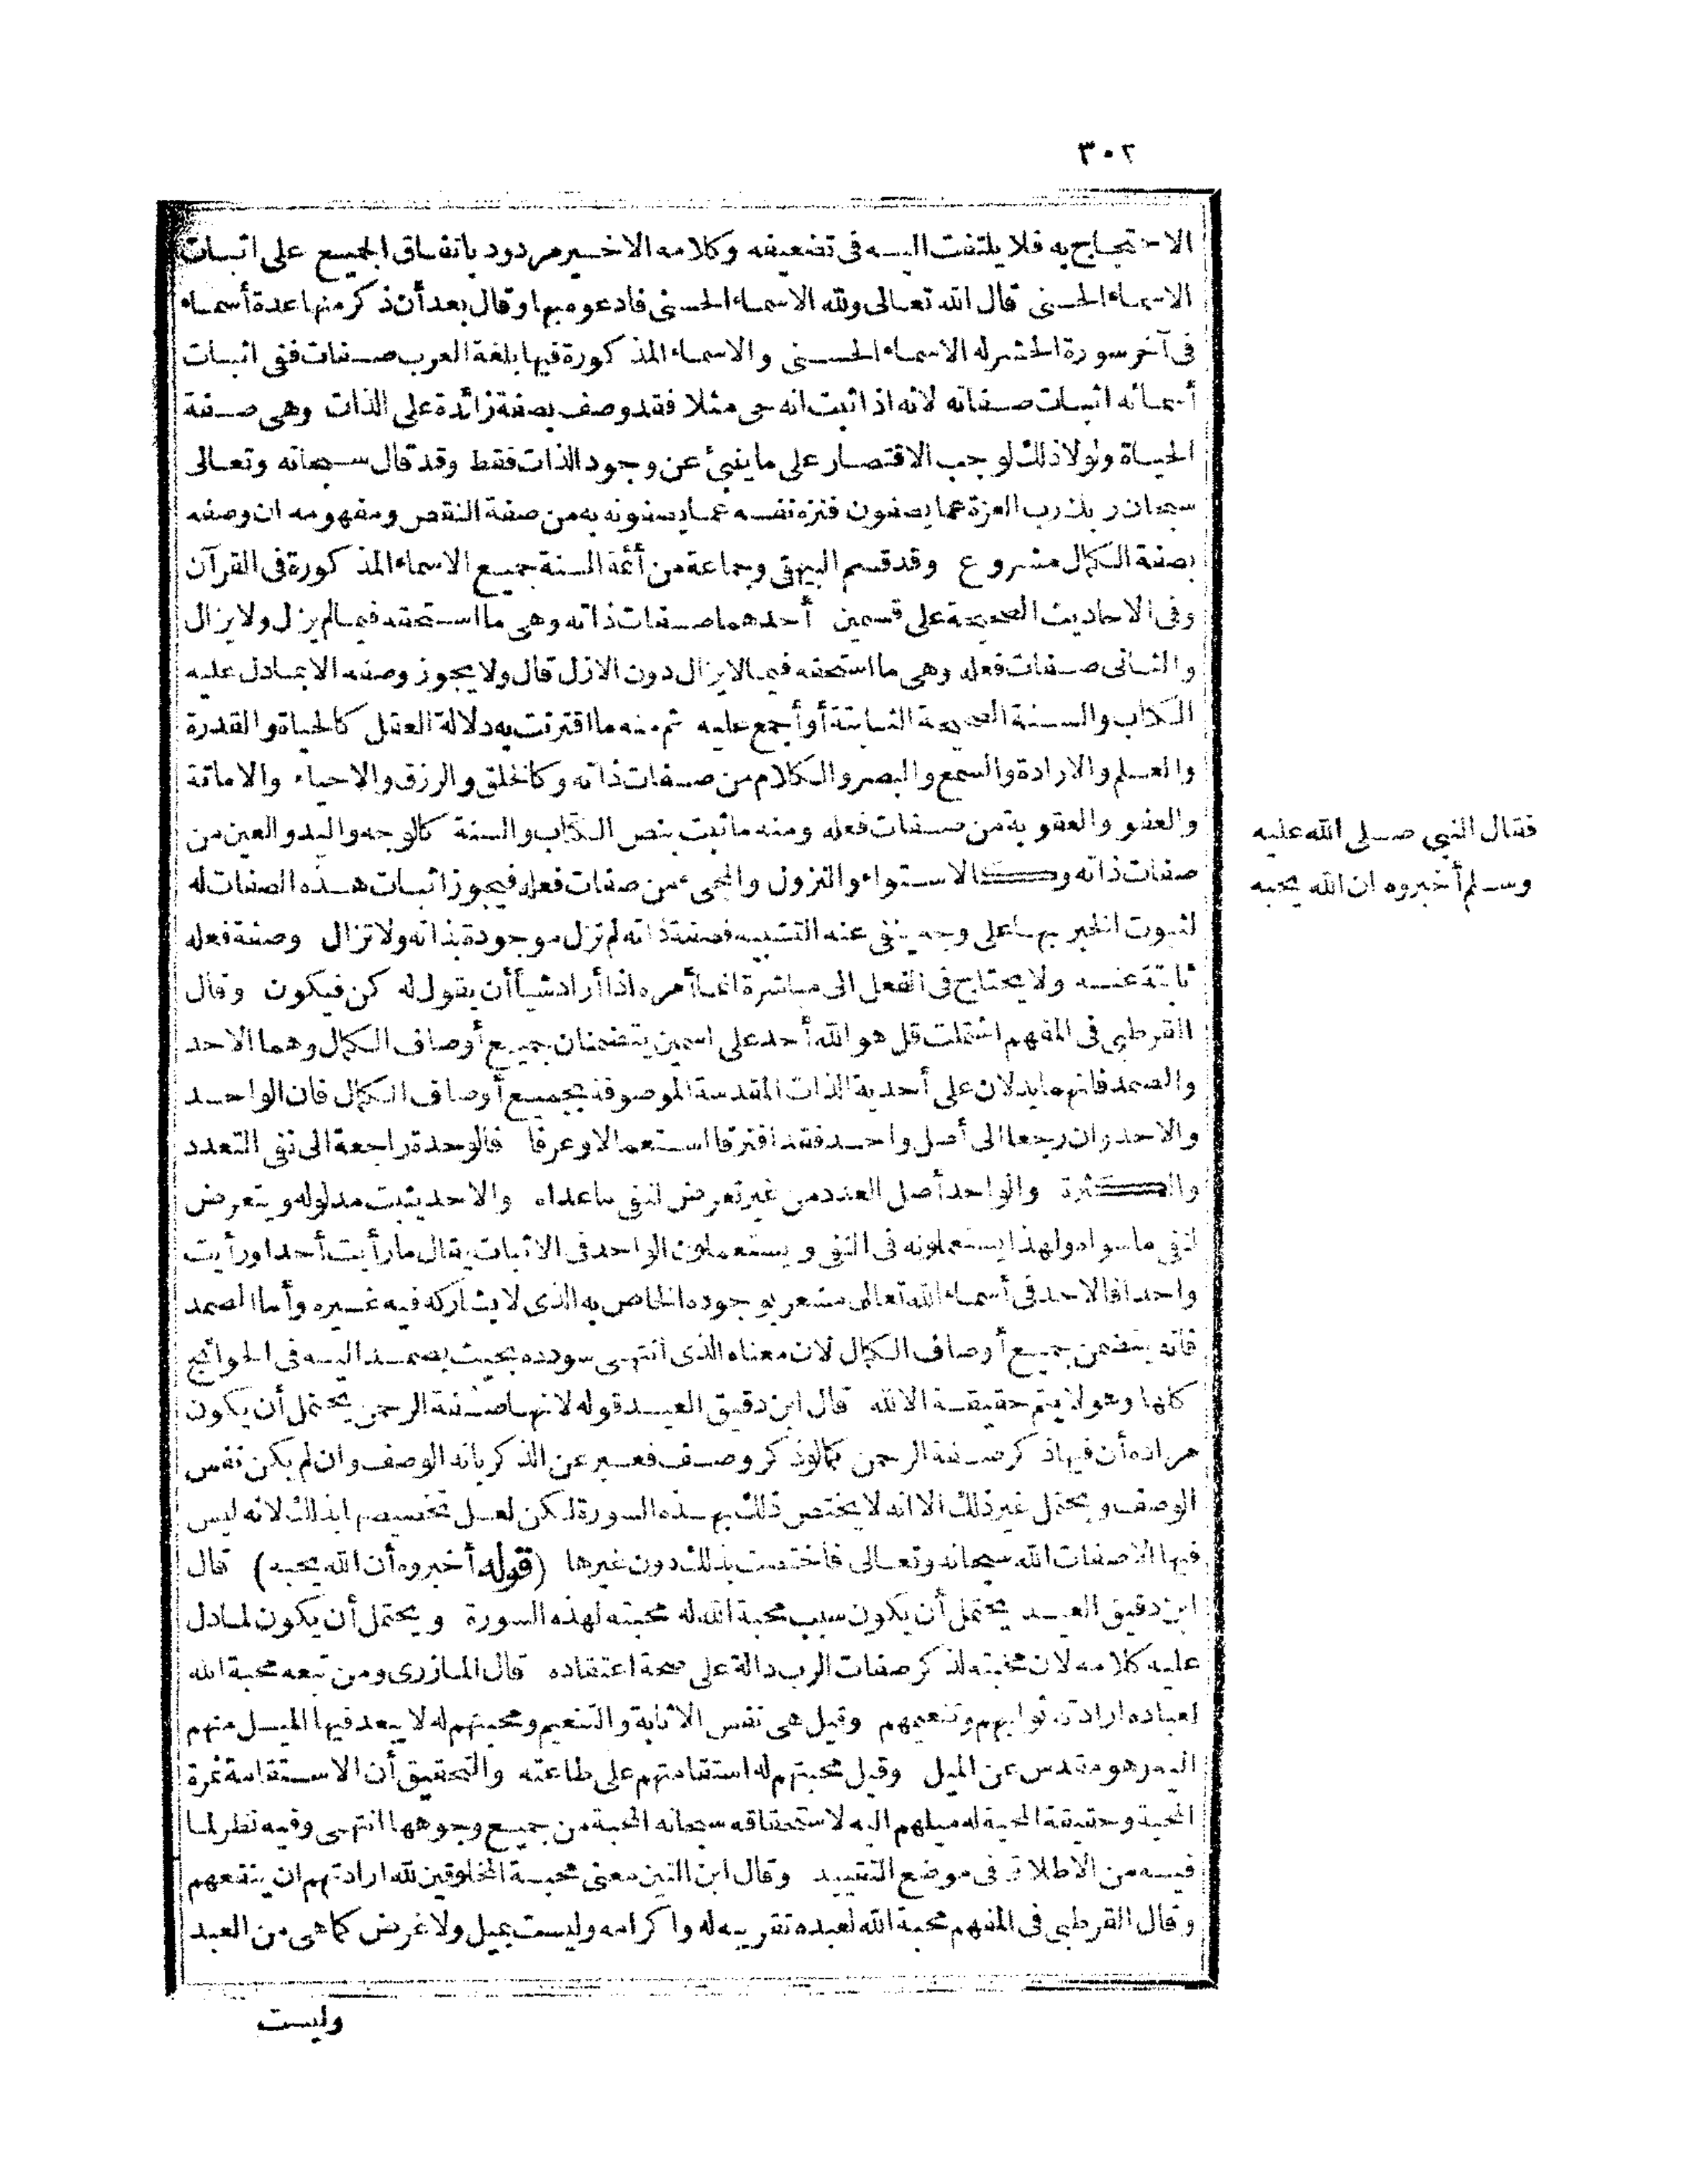 ٣٠٢
الاحتجاج به فلا يلتفت اليه فى تضعيفه وكلامه الاخير مردود باتفاق الجميع على اثبات
الاسماء الحسنى قال الله تعالى ولله الاسماء الحسنى فادعوه بها وقال بعد أن ذكر منها عدة أسماء
فى آخر سورة الحشر له الاسماء الحسنى والاسماء المذكورة فيها بلغة العرب صفات ففى اثبات
أسمائه اثبات صفاته لانه اذا ثبت انه حى مثلا فقد وصف بصفة زائدة على الذات وهى صفة
الحياة ولولا ذلك لوجب الاقتصار على ما ينبئ عن وجود الذات فقط وقد قال سبحانه وتعالى
سبحان ربك رب العزة عما يصفون فنزه نفسه عما يصفونه به من صفة النقص ومفهومه ان وصفه
بصفة الكمال مشروع وقد قسم البيهقى وجماعة من أئمة السنة جميع الاسماء المذكورة فى القرآن
وفى الاحاديث الصحيحة على قسمين أحدهما صفات ذاته وهى ما استحقه فيما لم يزل ولا يزال
والثانى صفات فعله وهى ما استحقه فيما لا يزال دون الازل قال ولا يجوز وصفه الا بما دل عليه
الكتاب والسنة الصحيحة الثابتة أو أجمع عليه ثم منه ما اقترنت به دلالة العقل كالحياة والقدرة
والعلم والارادة والسمع والبصر والكلام من صفات ذاته وكالخلق والرزق والاحياء والاماتة
والعفو والعقوبة من صفات فعله ومنه ما ثبت بنص الكتاب والسنة كالوجه واليد والعين من
صفات ذاته وكالاستواء والنزول والمجىء من صفات فعله فيجوز اثبات هذه الصفات له
لثبوت الخبر بها على وجه ينفى عنه التشبيه فصفة ذاته لم تزل موجودة بذاته ولا تزال وصفة فعله
ثابتة عنه ولا يحتاج فى الفعل الى مباشرة انما أمره اذا أراد شيأ أن يقول له كن فيكون وقال
القرطبى فى المفهم اشتملت قل هو الله أحد على اسمين يتضمنان جميع أوصاف الكمال وهما الاحد
والصمد فانهما يدلان على أحدية الذات المقدسة الموصوفة بجميع أوصاف الكمال فان الواحد
والاحد وان رجعا الى أصل واحد فقد افترقا استعمالا وعرفا فالوحدة راجعة الى نفى التعدد
والكثرة والواحد أصل العدد من غير تعرض لنفى ما عداه والاحد يثبت مدلوله ويتعرض
لنفى ما سواه ولهذا يستعملونه فى النفى ويستعملون الواحد فى الاثبات يقال ما رأيت أحدا ورأيت
واحدا فالاحد فى أسماء الله تعالى مشعر بوجوده الخاص به الذى لا يشاركه فيه غيره وأما الصمد
فانه يتضمن جميع أوصاف الكمال لان معناه الذى انتهى سودده بحيث يصمد اليه فى الحوائج
كلها وهو لا يتم حقيقة الا لله قال ابن دقيق العيد قوله لانها صفة الرحمن يحتمل أن يكون
مراده أن فيها ذكر صفة الرحمن كما لو ذكر وصف فعبر عن الذكر بانه الوصف وان لم يكن نفس
الوصف ويحتمل غير ذلك الا انه لا يختص ذلك بهذه السورة لكن لعل تخصيصها بذلك لانه ليس
فيها الا صفات الله سبحانه وتعالى فاختصت بذلك دون غيرها (قوله أخبروه أن الله يحبه) قال
ابن دقيق العيد يحتمل أن يكون سبب محبة الله له محبته لهذه السورة ويحتمل أن يكون لما دل
عليه كلامه لان محبته لذكر صفات الرب دالة على صحة اعتقاده قال المازرى ومن تبعه محبة الله
لعباده ارادته ثوابهم وتنعيمهم وقيل هى نفس الاثابة والتنعيم ومحبتهم له لا يبعد فيها الميل منهم
اليه وهو مقدس عن الميل وقيل محبتهم له استقامتهم على طاعته والتحقيق أن الاستقامة ثمرة
المحبة وحقيقة المحبة له ميلهم اليه لاستحقاقه سبحانه المحبة من جميع وجوهها انتهى وفيه نظر لما
فيه من الاطلاق فى موضع التقييد وقال ابن التين معنى محبة المخلوقين لله ارادتهم ان ينفعهم
وقال القرطبى فى المفهم محبة الله لعبده تقريبه له واكرامه وليست بميل ولا غرض كما هى من العبد
وليست
فقال النبى صلى الله عليه
وسلم أخبروه ان الله يحبه